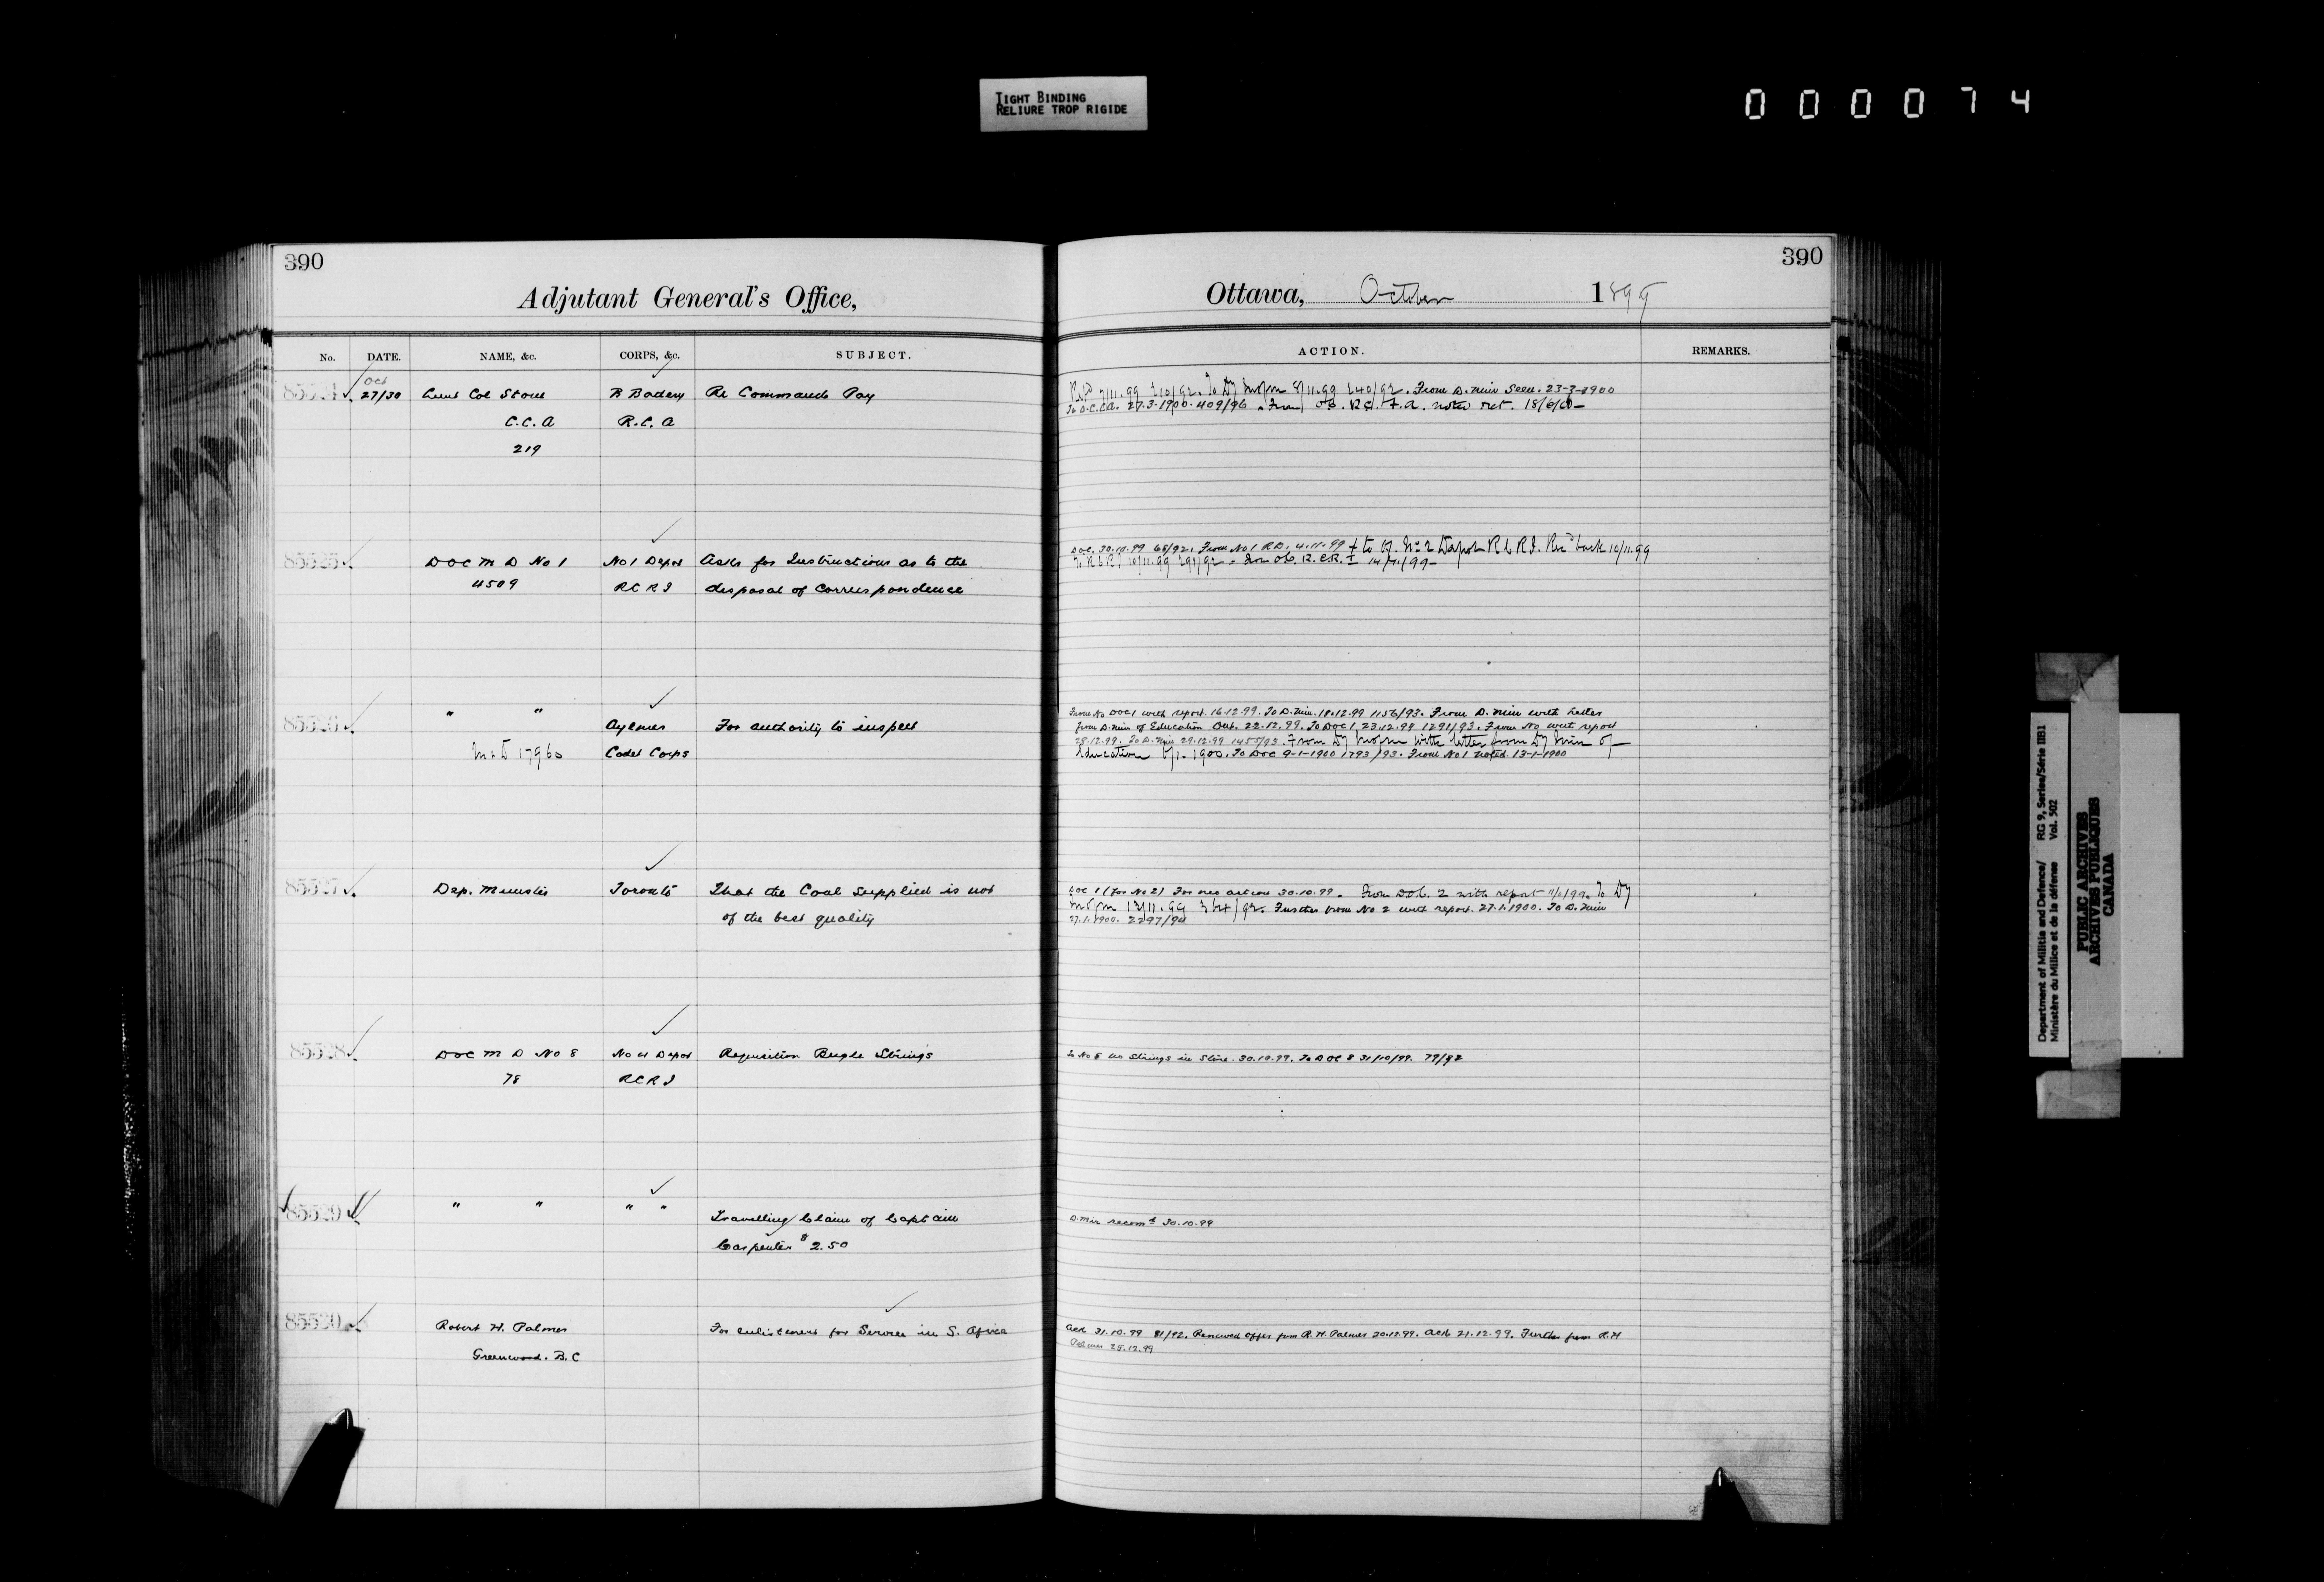 TIGHT BINDING
RELIURE TROP RIGIDE
000074
390
Adjutant General's Office,
No. DATE. NAME, &c. CORPS, &c. SUBJECT.
85524 Oct 27/30 Lieut Col Stone B Battery Re Command Pay
C.C.A R.C.A
219
85525 DOC M D No 1 No 1 Depot Asks for Instructions as to the
4509 RCRI disposal of Correspondence
85526 " " Aylmer For authority to inspect
17960 Cadet Corps
85527 Dep. Minister Toronto That the Coal supplied is not
of the best quality
85528 DOC M D No 8 No 4 Depot Requisition Bugle Strings
78 RCRI
85529 " " " " Travelling Claim of Captain
Carpenter $2.50
85530 Robert H. Palmer For enlistment for Service in S. Africa
Greenwood. B.C
390
Ottawa, October 1899
ACTION. REMARKS.
From D. Min Seen. 23-3-1900
To O.C.C.A. 27.3.1900. 409/96. From noted ret. 18/6/00
DOC. 30.10.99 68/92. From No 1 RD. 4.11.99 + to Of. No 2 Depot RCRI. Rec'd back 10/11.99
To RCRI 10/11.99 291/92. From OC. R.C.R.I 14/11/99
From No DOC1 with report. 16.12.99. To D. Min. 18.12.99 1156/93. From D. Min with Letter
from D. Min of Education Ont. 22.12.99. To DOC 1, 23.12.99 1291/93. From No with report
28.12.99. To D. Min 29.12.99 1455/93. From Dy with letter from Dy Min of
Education 6/1.1900. To DOC 9-1-1900 1793/93. From No 1 noted. 13-1-1900
DOC 1 (For No 2) For nec action 30.10.99. From DOC. 2 with report 11/11/99. To Dy
13/11.99 364/92. Further from No 2 with report. 27.1.1900. To D. Min
27.1.1900. 2297/94
To No 8 no Strings in Store. 30.10.99. To DOC 8 31/10/99. 79/92
D. Min recomd 30.10.99
Ack 31.10.99 81/92. Renewed offer from R. H. Palmer 20.12.99. Ack 21.12.99. Further from R.H
Palmer 28.12.99
Department of Militia and Defence/ RG 9, Series/Série IIB1
Ministère du Milice et de la défense Vol. 502
PUBLIC ARCHIVES
ARCHIVES PUBLIQUES
CANADA